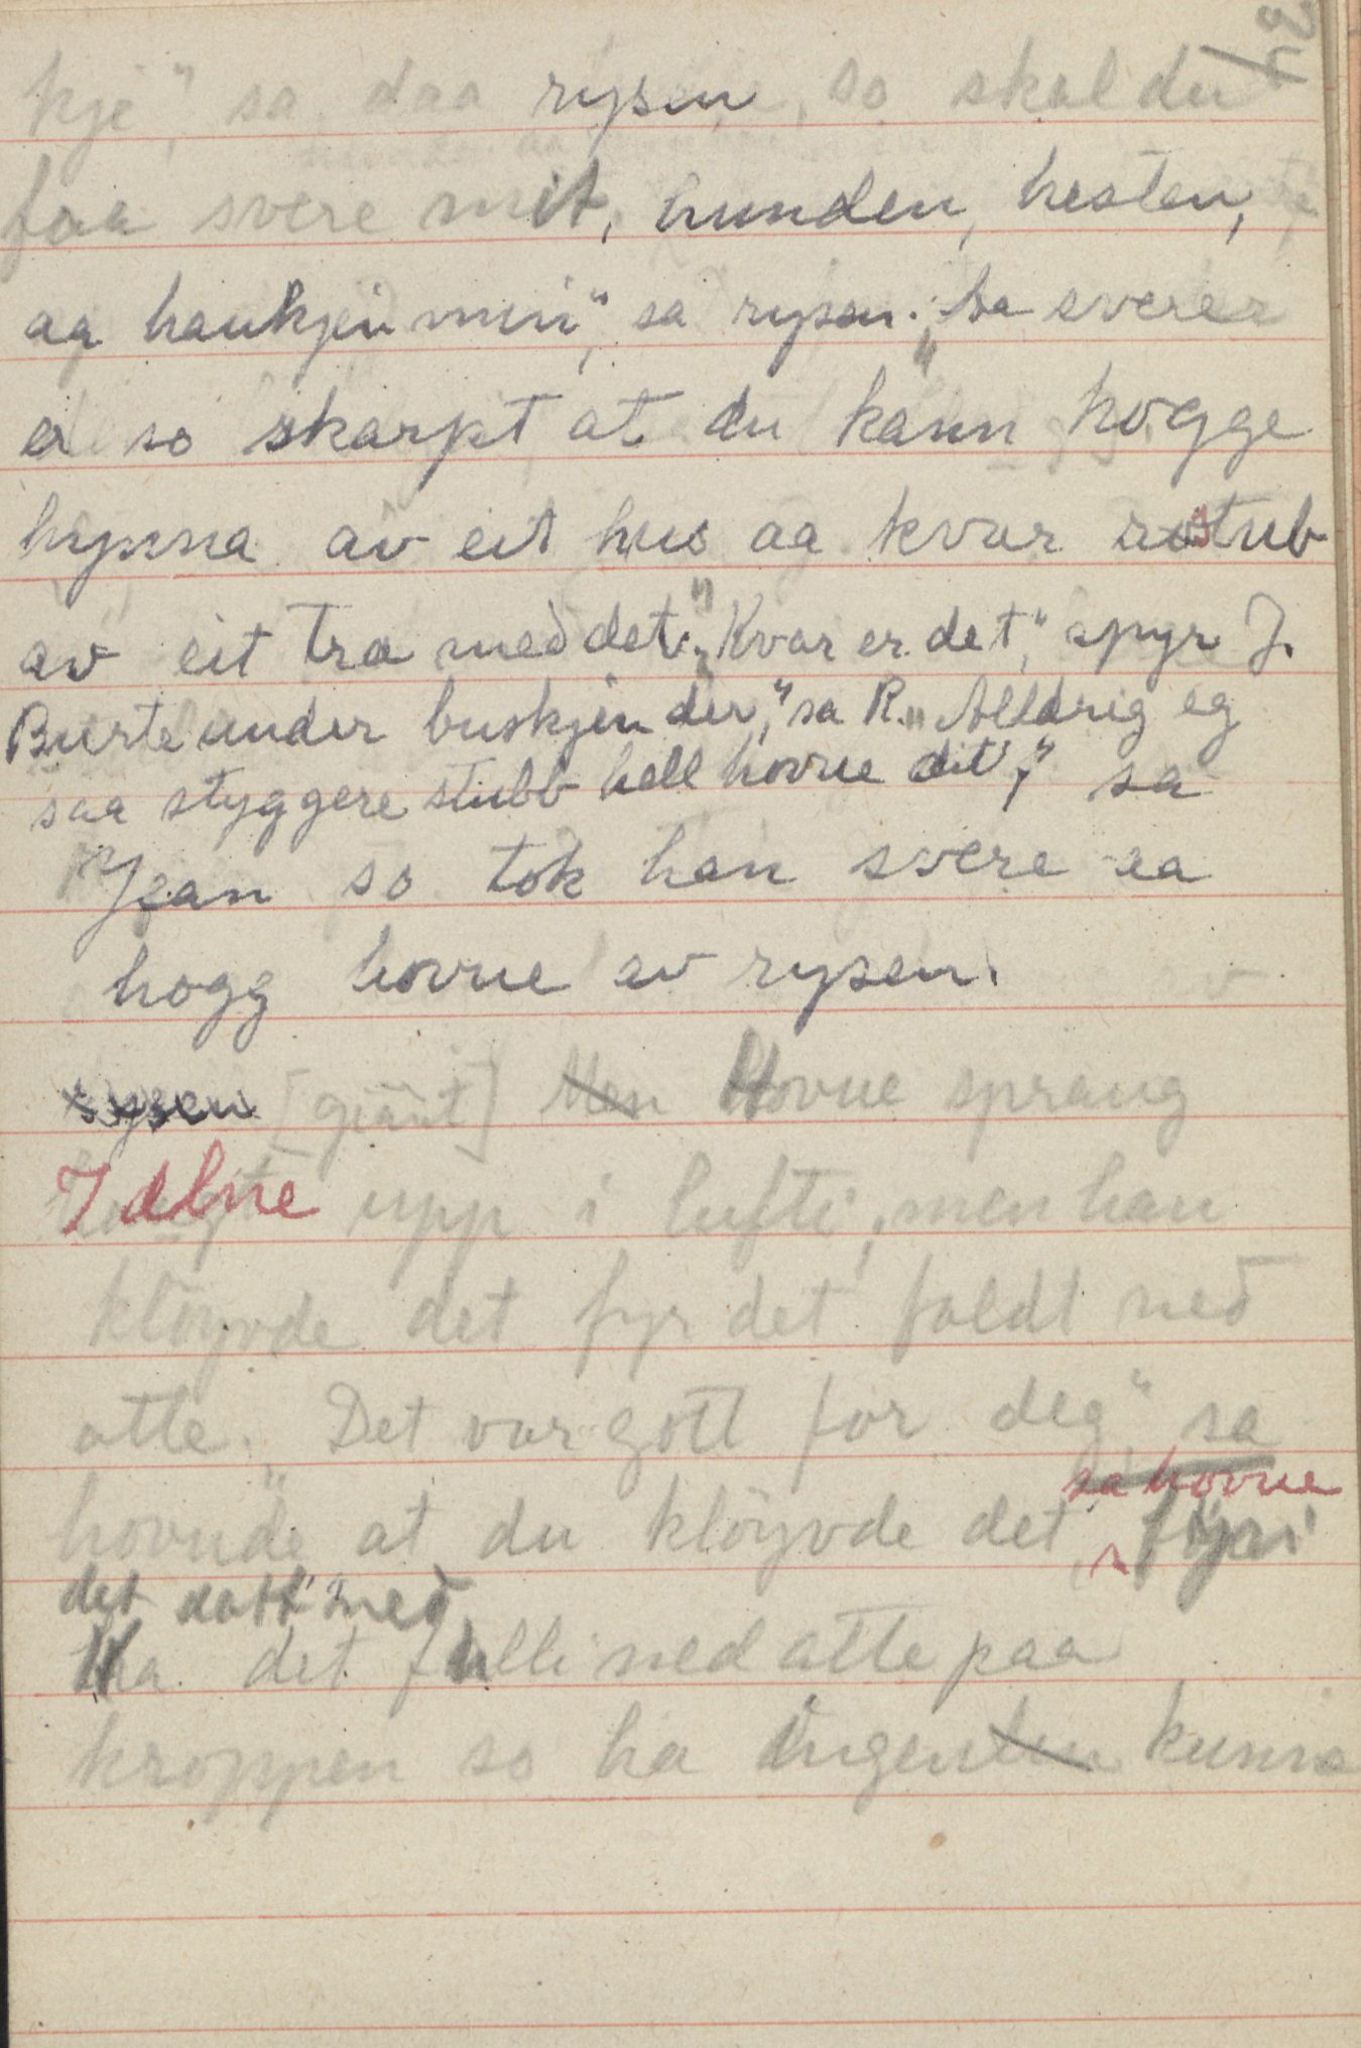 kje", sa daa rysen, so skal du
faa svere mit, hunden, hesten,
aa haukjen min", sa rysen. "Da sverer
er so skarpt at du kann hogge
hynna av eit hus aa kvar stub
av eit tra med det." "Kvar er det," spyr J.
Burte under buskjen der," sa R. "Alldrig eg
saa styggere stubb hell hovne dit," sa
Jean so tok han svere aa
hogg hovne av rysen.
rysen [giant] Men Hovne sprang
I ælne upp i lufti, men han
klöyvde det fyr det faldt neð
atte. "Det var gott for deg" sa
sa hovne
hovude at du klöyvde det, fyri
det datt neð
det fulli ned atte paa
kroppen so ha ingenten kunna